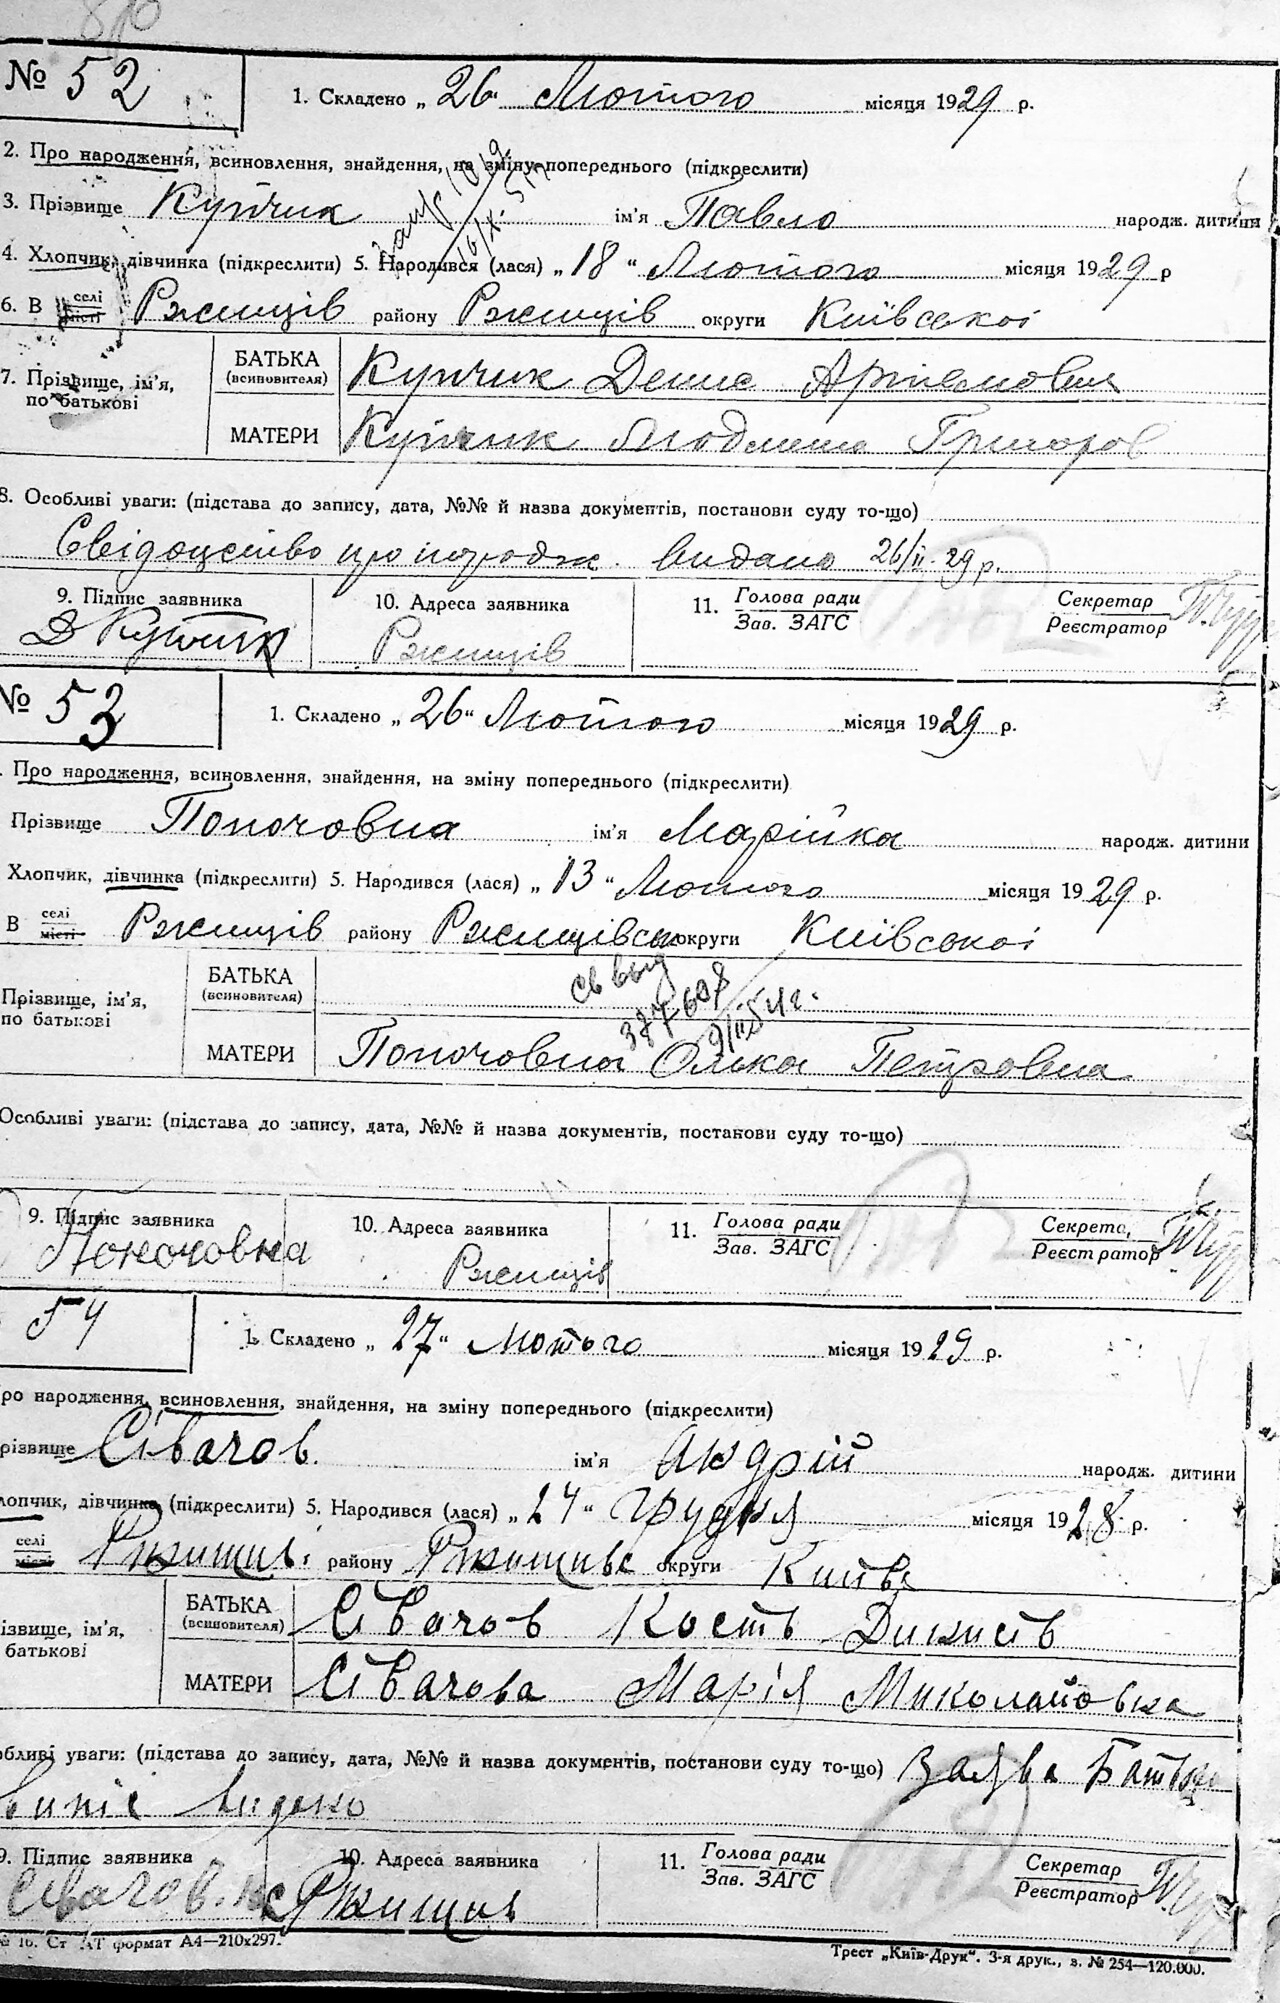 № 52
1. Складено „ 26 “ Лютого місяця 1929 р.
2. Про народження, всиновлення, знайдення, на зміну попереднього (підкреслити)
3. Прізвище Купчик ім'я Павло народж. дитини
4. Хлопчик, дівчинка (підкреслити) 5. Народився (лася) „ 18 “ Лютого місяця 1929 р
6. В селі місті Ржищів району Ржищів округи Київської
7. Прізвище, ім'я, по батькові
БАТЬКА (всиновителя) Купчик Денис Артемович
МАТЕРИ Купчик Людмила Григоров
8. Особливі уваги: (підстава до запису, дата, №№ й назва документів, постанови суду то-що)
Свідоцтво про народж. видано 26/II-29 р.
9. Підпис заявника 10. Адреса заявника 11. Голова ради Зав. ЗАГС Секретар Реєстратор
Д Купчик Ржищів
№ 53
1. Складено „ 26 “ Лютого місяця 1929 р.
. Про народження, всиновлення, знайдення, на зміну попереднього (підкреслити)
Прізвище Попочовна ім'я Марійка народж. дитини
Хлопчик, дівчинка (підкреслити) 5. Народився (лася) „ 13 “ Лютого місяця 1929 р.
В селі місті Ржищів району Ржищівськ округи Київської
Прізвище, ім'я, по батькові
БАТЬКА (всиновителя)
св выд
377608
9/II 54 г.
МАТЕРИ Попочовна Олька Петровна
Особливі уваги: (підстава до запису, дата, №№ й назва документів, постанови суду то-що)
9. Підпис заявника 10. Адреса заявника 11. Голова ради Зав. ЗАГС Секрета, Реєстратор
Попочовна Ржищів
54
1. Складено „ 27 “ Лютого місяця 1929 р.
ро народження, всиновлення, знайдення, на зміну попереднього (підкреслити)
різвище Сівачов. ім'я Андрій народж. дитини
лопчик, дівчинка (підкреслити) 5. Народився (лася) „ 24 “ грудня місяця 1928 р.
селі місті Ржищів району Ржищивс округи Київс
ізвище, ім'я, батькові
БАТЬКА (всиновителя) Сівачов Кость Дикист
МАТЕРИ Сівачова Марія Миколайовна
обливі уваги: (підстава до запису, дата, №№ й назва документів, постанови суду то-що) Заява Батька
Випіс видано
9. Підпис заявника 10. Адреса заявника 11. Голова ради Зав. ЗАГС Секретар Реєстратор
Сівачов. Ржищив
№ 16. Ст АТ формат А4—210x297. Трест „Київ-Друк“. 3-я друк., з. № 254—120.000.